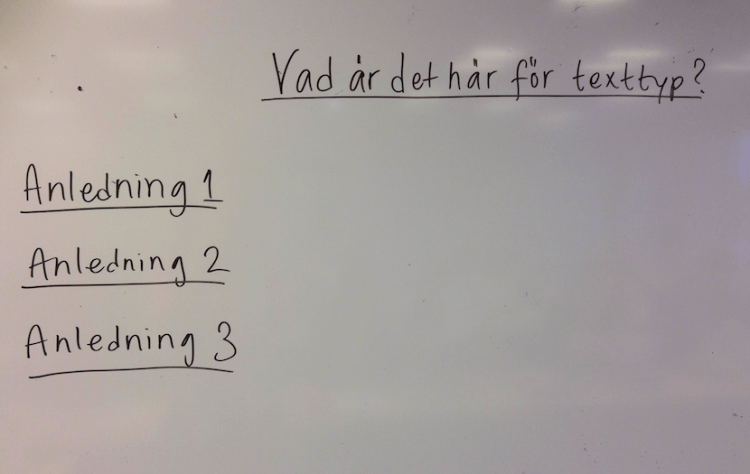 Vad är det här för texttyp?
Anledning 1
Anledning 2
Anledning 3